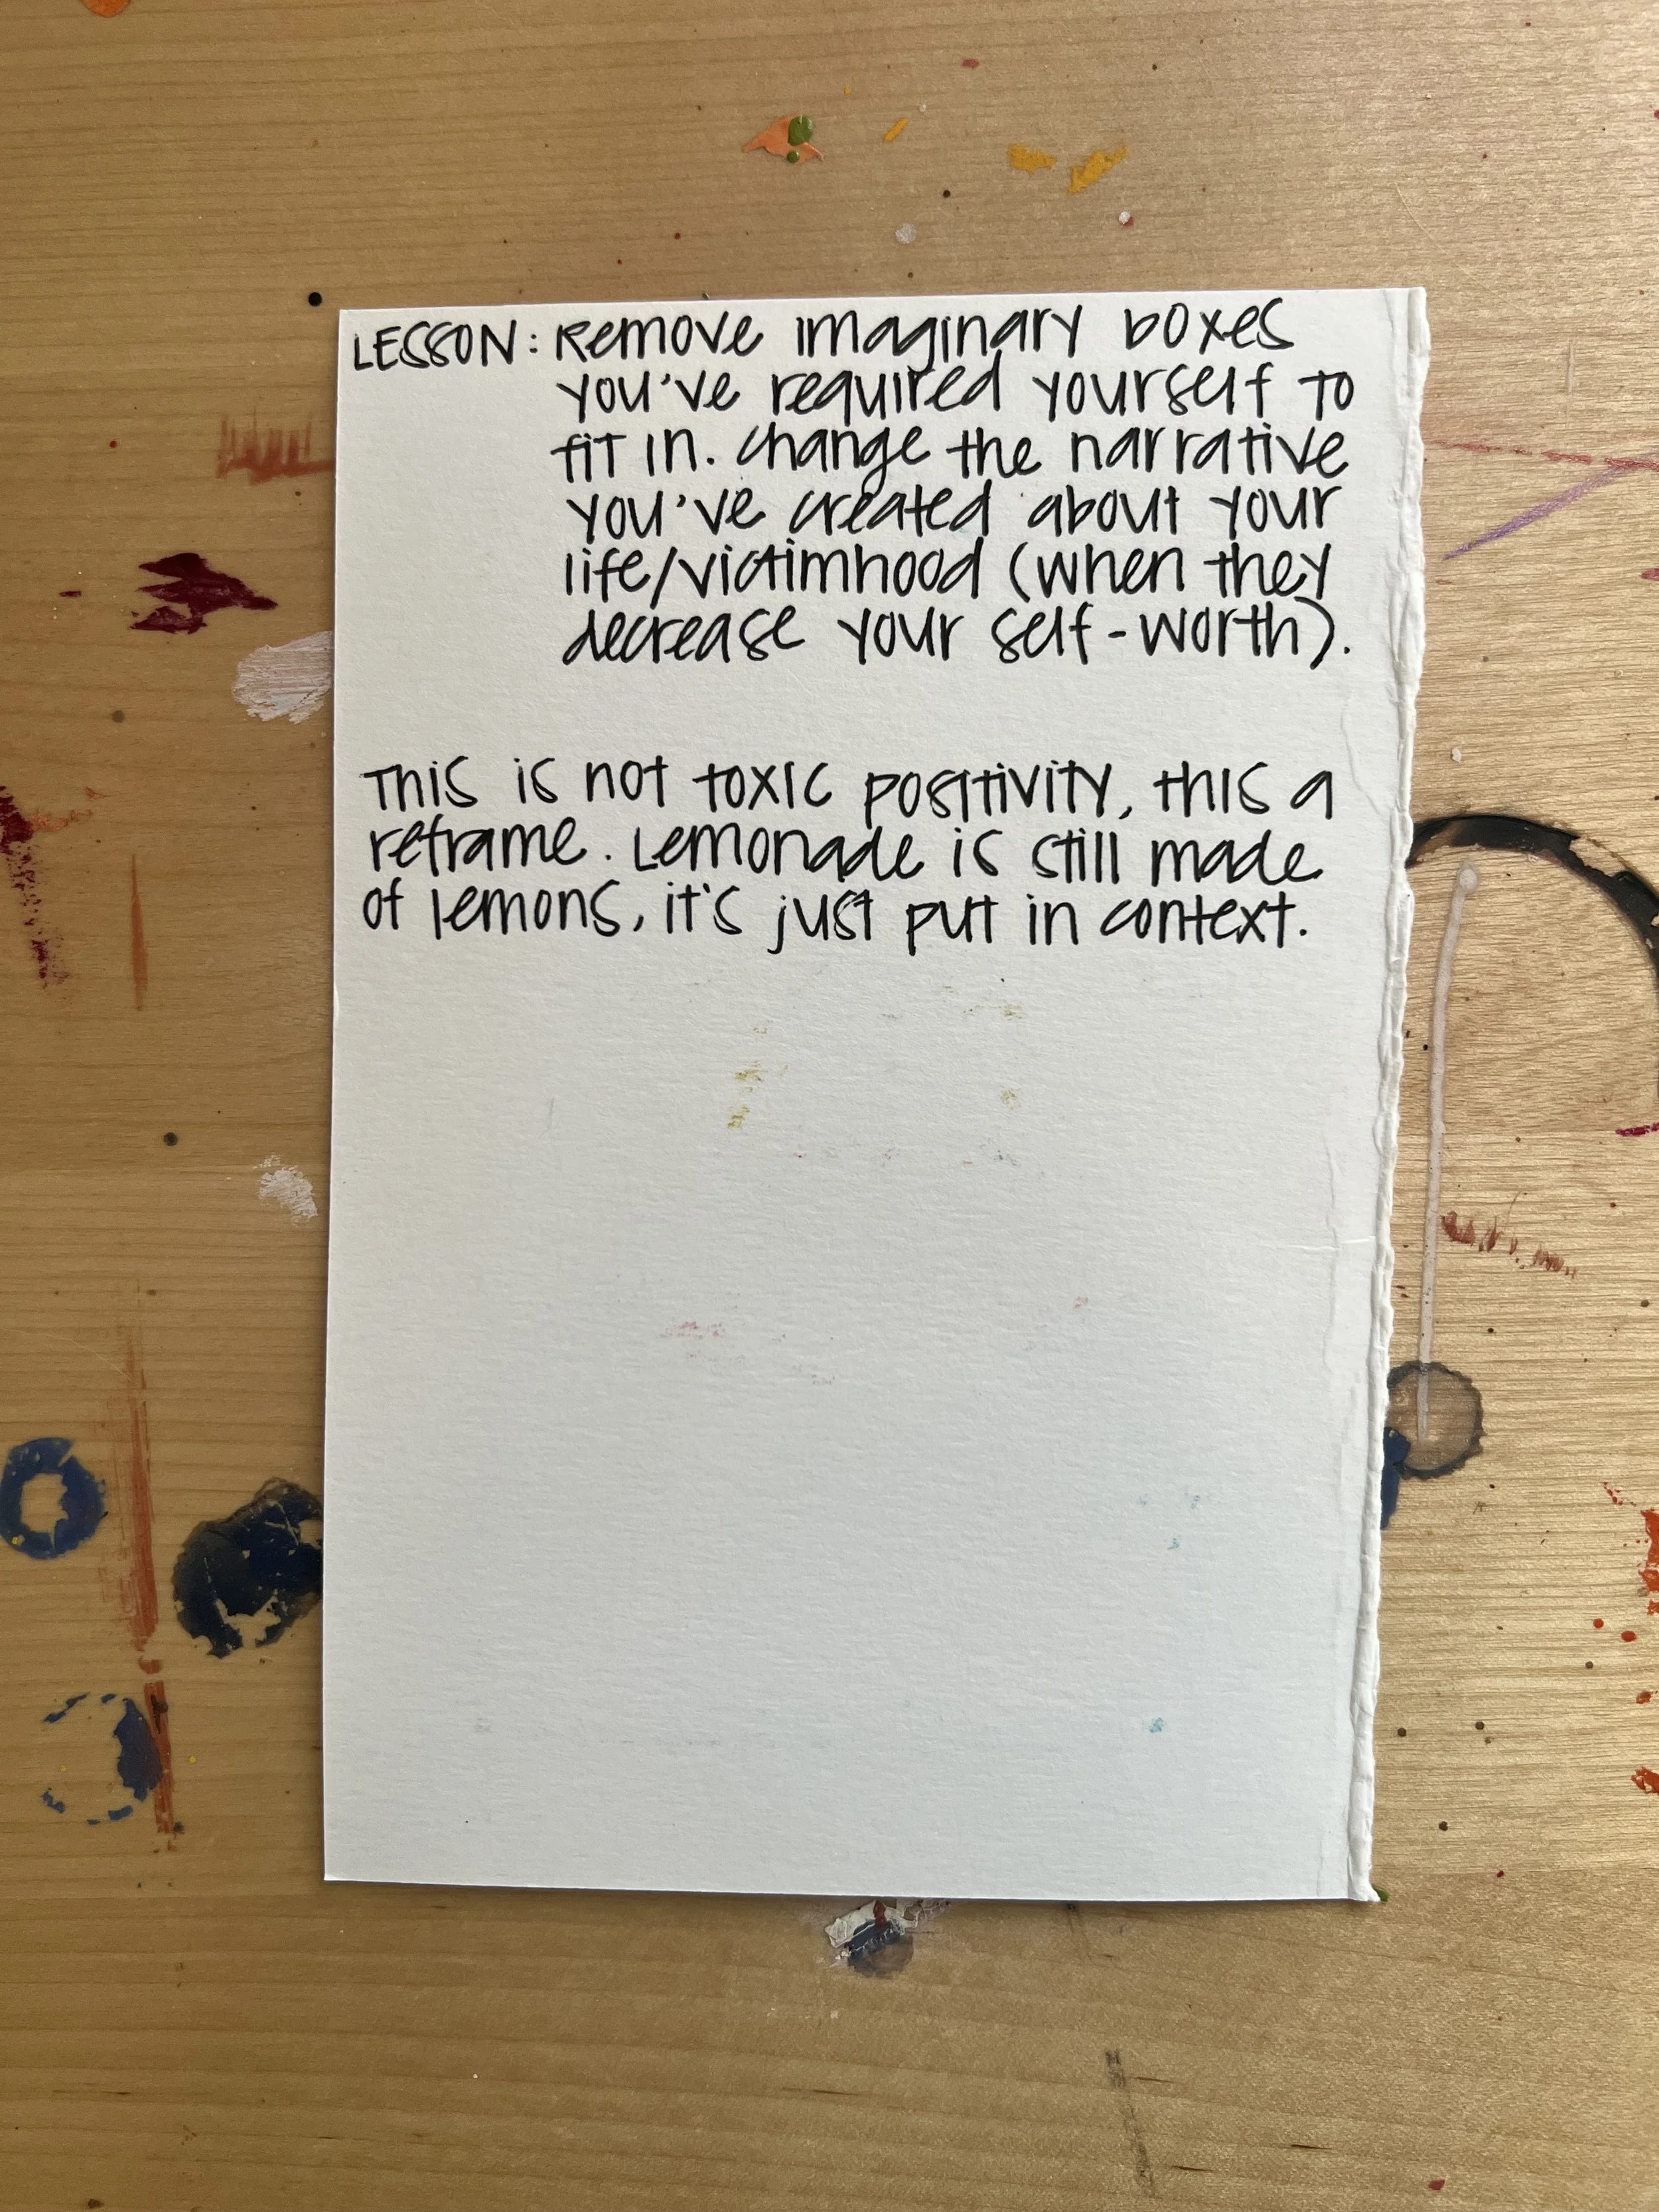 LESSON: Remove imaginary boxes
you've required yourself to
fit in. Change the narrative
you've created about your
life/victimhood (when they
decrease your self-worth).
This is not toxic positivity, this a
reframe. Lemonade is still made
of lemons, it's just put in context.